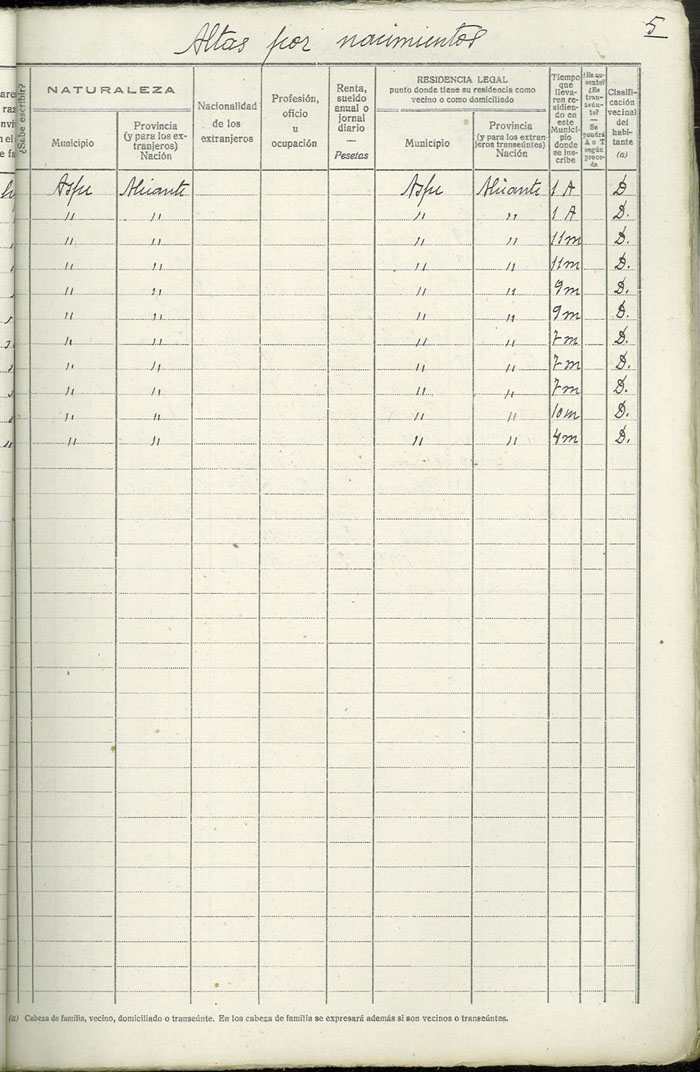 5
Altas por nacimientos
¿Sabe escribir?
NATURALEZA
Municipio
Provincia
(y para los ex-
tranjeros)
Nación
Nacionalidad
de los
extranjeros
Profesión,
oficio
u
ocupación
Renta,
sueldo
anual o
jornal
diario
—
Pesetas
RESIDENCIA LEGAL
punto donde tiene su residencia como
vecino o como domiciliado
Municipio
Provincia
(y para los extran-
jeros transeúntes)
Nación
Tiempo
que
lleva-
ren re-
sidien-
do en
este
Munici-
pio
donde
se ins-
cribe
¿Es au-
sente?
¿Es
tran-
seún-
te?
—
Se
pondrá
A o T
según
proce-
da
Clasifi-
cación
vecinal
del
habi-
tante
(a)
Aspe Alicante Aspe Alicante 1 A D
" " " " 1 A D.
" " " " 11m D.
" " " " 11m D.
" " " " 9m D.
" " " " 9m D.
" " " " 7m D.
" " " " 7m D.
" " " " 7m D.
" " " " 10m D.
" " " " 4m D.
(a) Cabeza de familia, vecino, domiciliado o transeúnte. En los cabeza de familia se expresará además si son vecinos o transeúntes.